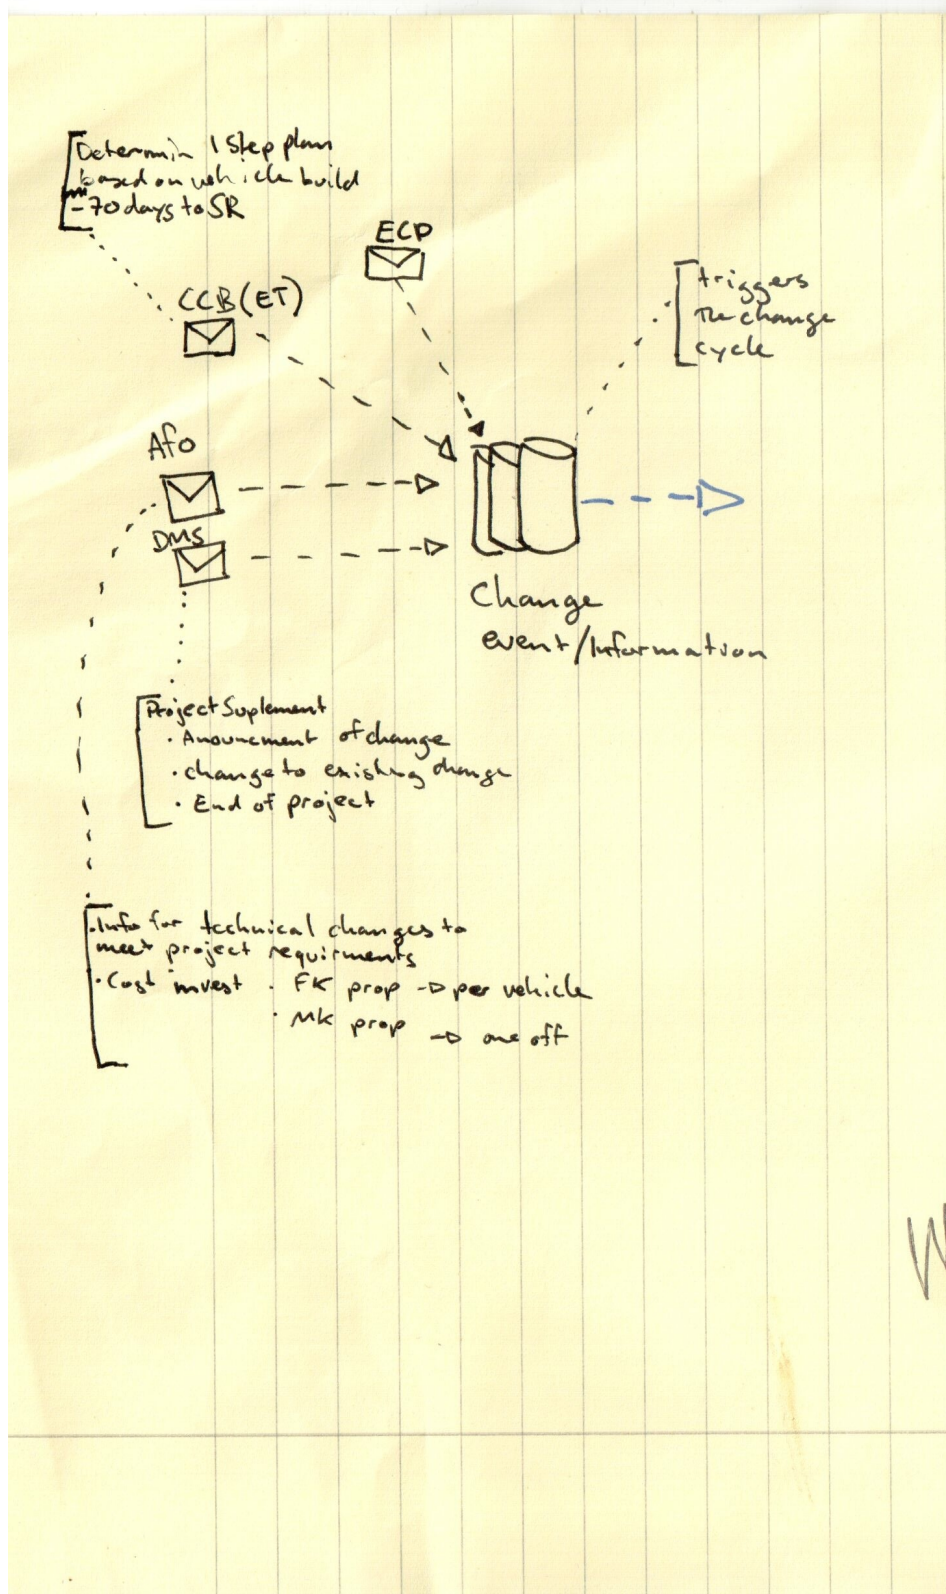 Determin 1 step plan
based on vehicle build
- 70 days to SR
ECP
CCB (ET)
triggers
The change
cycle
Afo
DMS
Change
event/Information
Project Suplement
· Anouncment of change
· change to existing change
· End of project
· Info for technical changes to
meet project requirments
· Cost invest · FK prop → per vehicle
· MK prop → one off